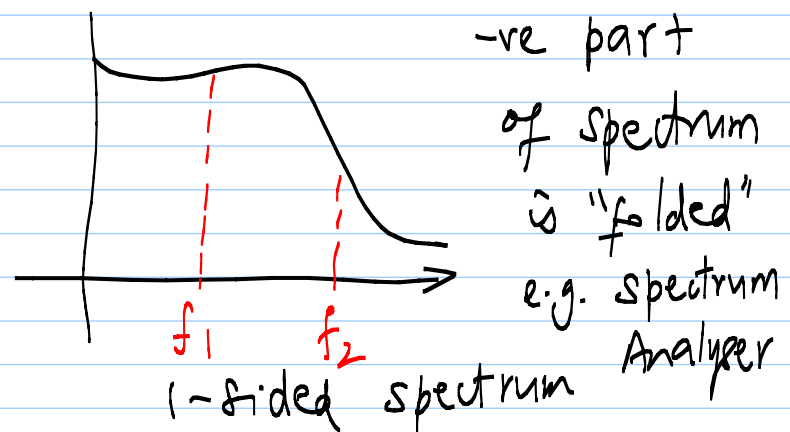 -ve part
of spectrum
is "folded"
e.g. spectrum
Analyser
f1
f2
1-sided spectrum